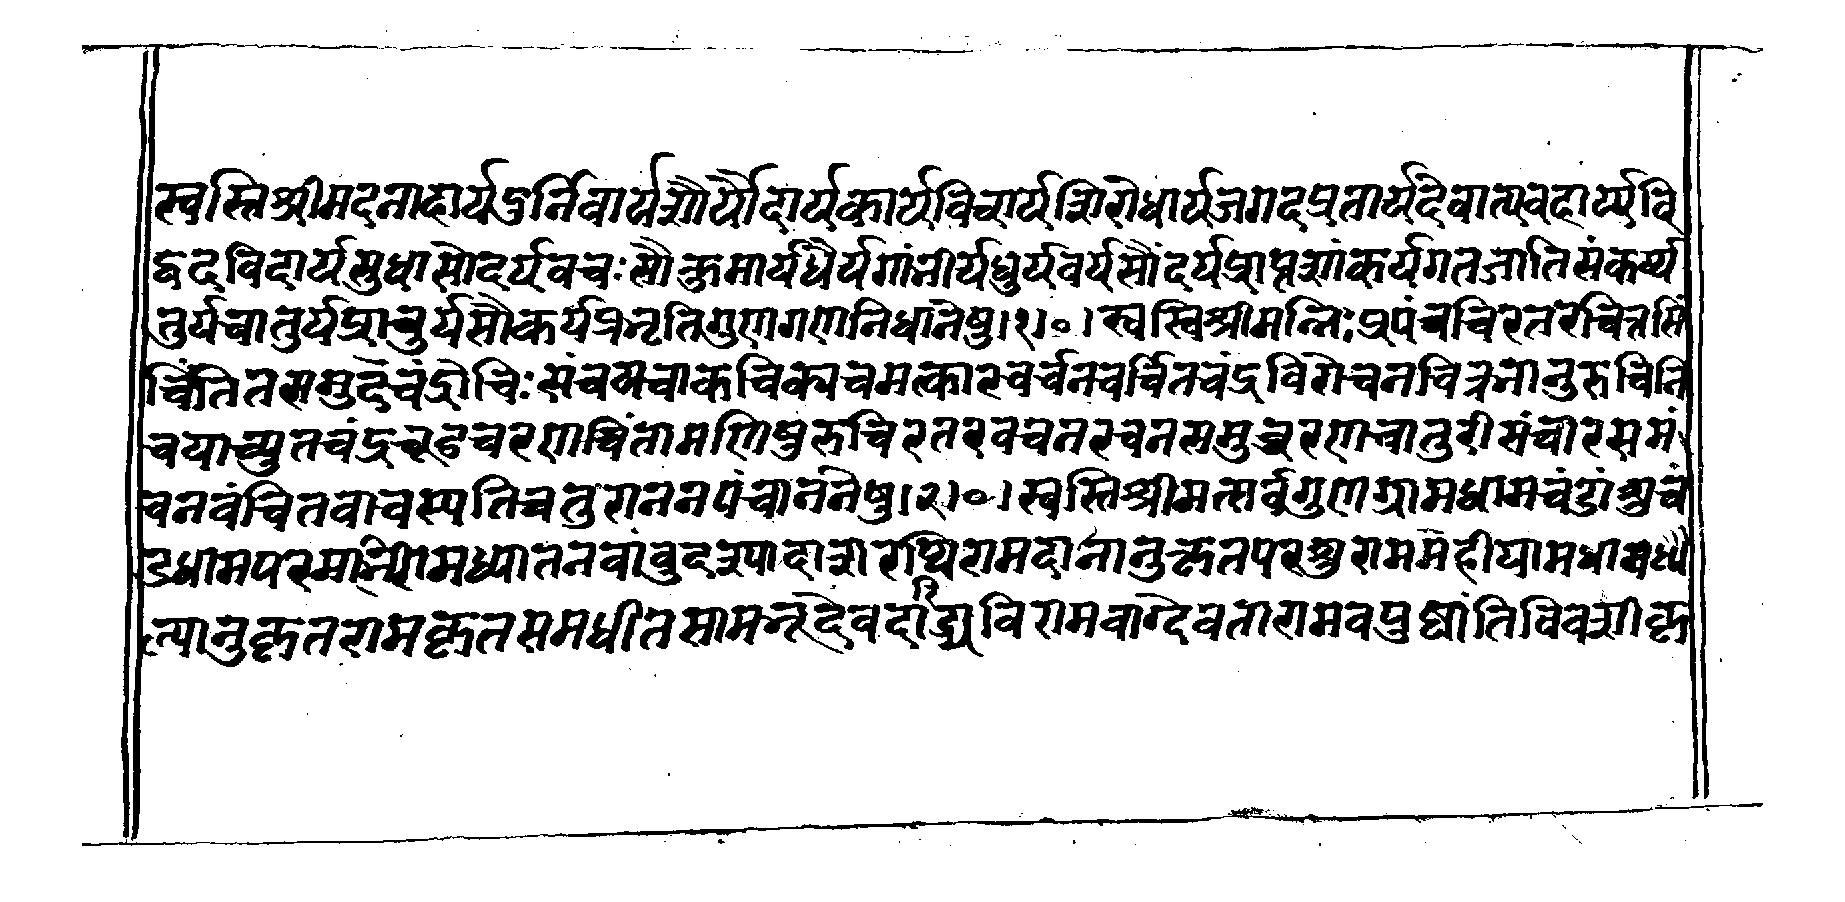 स्वस्तिश्रीमदनाहार्यदुर्निवार्यशौर्यौदार्यकार्यविचार्यशिरोधार्यजगदप्रतार्यदेवात्यवहार्य्यवि
द्वदविदार्यसुधासोदर्यवचःसौकुमार्यधैर्यगांभीर्यधुर्यवर्यसौंदर्यप्राप्तशांकर्यगतजातिसंकर्य्य
तुर्यचातुर्यप्राचुर्यसौकर्यप्रभृतिगुणगणनिधानेषु।१।०।स्वस्तिश्रीमन्निःप्रपंचचिरतरंचित्तसिं
चिंतितसमुदंचंद्रोचिःसंचयचाकचिक्यचमत्कारचर्चनचर्चितचंद्रविरोचनचित्रभानुरुचिनि
चयाच्युतचंद्रचूडचरणचिंतामणिषुरुचिरतरवचनरचनसमुच्चरणचातुरीसंचीरसमं
चनवंचितवाचस्पतिचतुराननपंचाननेषु।२।०।स्वस्तिश्रीमत्सर्वगुणग्रामधामचंडांशुचं
डधामपरमाभिरामध्यातनवांबुदश्यादाशरथिरामदानानुकृतपरशुराममहीयामधामधौ
त्यानुकृतरामकृतसमधीतसामन्दैवदाद्यविरामवाग्देवतारामवपुष्षांतिविवशीकृ